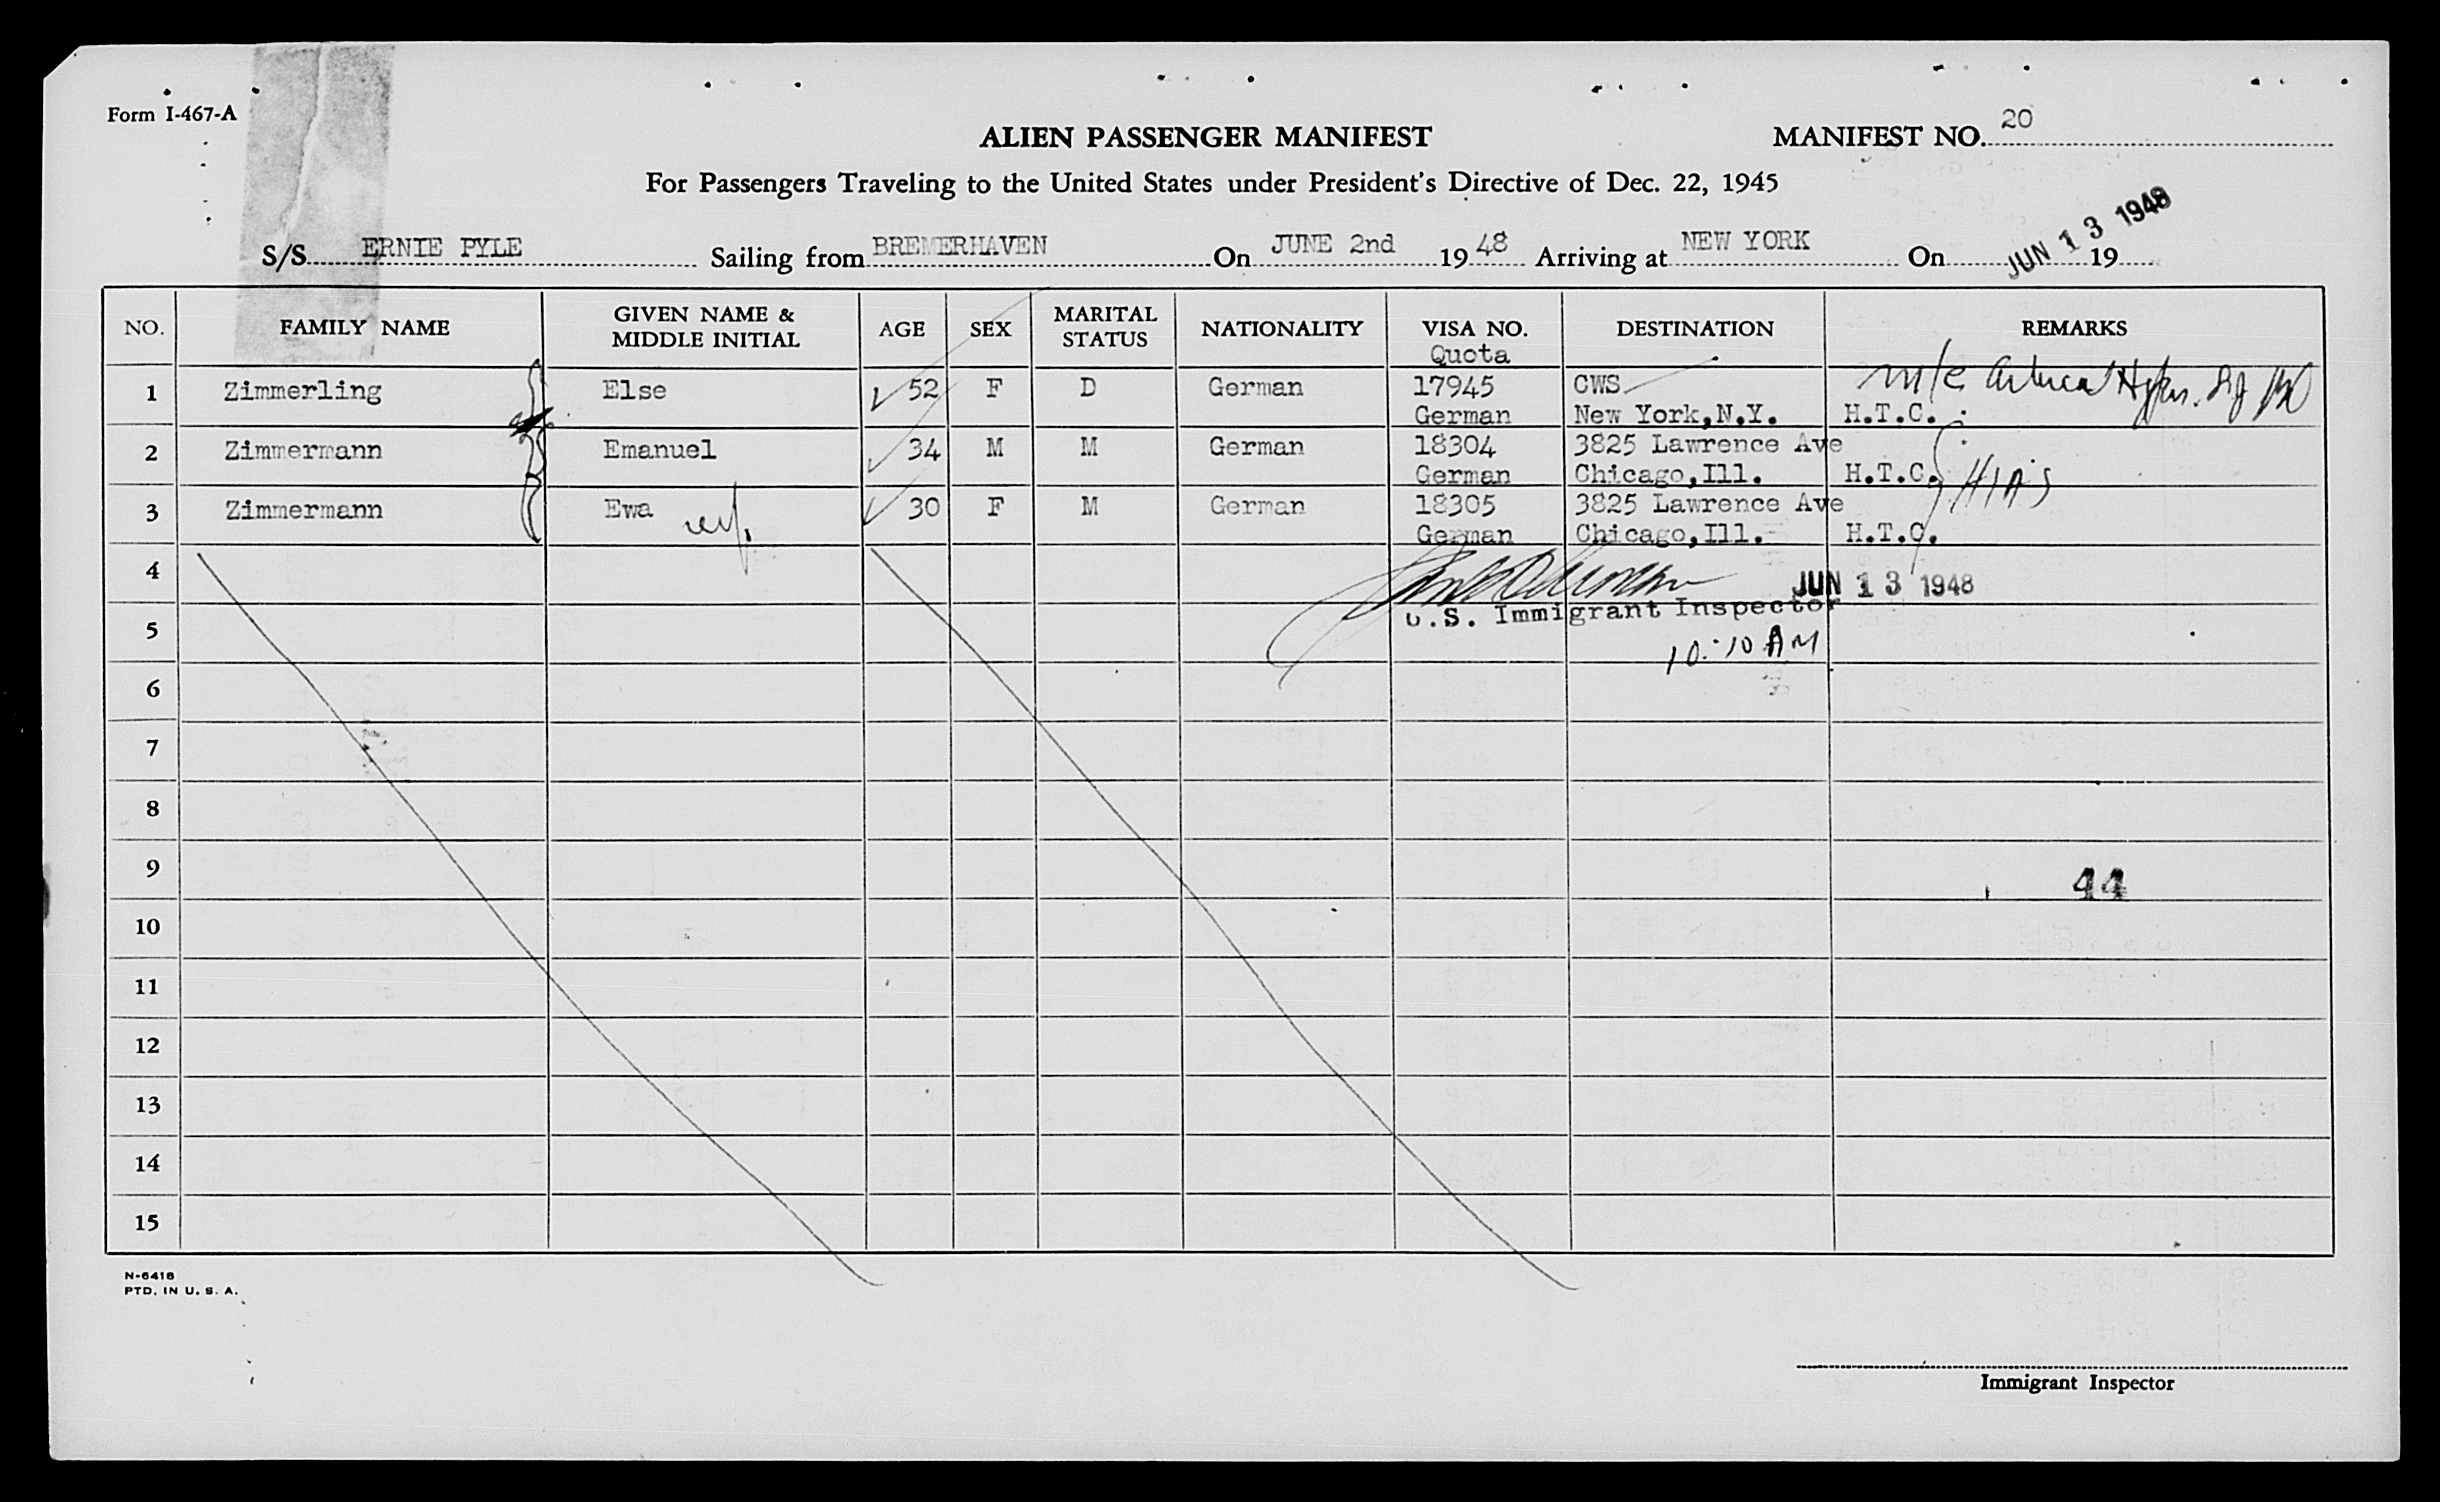 Form I-467-A
ALIEN PASSENGER MANIFEST
MANIFEST NO. 20
For Passengers Traveling to the United States under President's Directive of Dec. 22, 1945
S/S ERNIE PYLE Sailing from BREMERHAVEN On JUNE 2nd 19 48 Arriving at NEW YORK On JUN 13 1948 19
NO. FAMILY NAME GIVEN NAME & MIDDLE INITIAL AGE SEX MARITAL STATUS NATIONALITY VISA NO. DESTINATION REMARKS
Quota
1 Zimmerling Else 52 F D German 17945 CWS
German New York,N.Y. H.T.C.
2 Zimmermann Emanuel 34 M M German 18304 3825 Lawrence Ave
German Chicago,Ill. H.T.C. HIAS
3 Zimmermann Ewa wf. 30 F M German 18305 3825 Lawrence Ave
German Chicago,Ill. H.T.C.
4 JUN 13 1948
U.S. Immigrant Inspector
5 10:10 AM
6
7
8
9 44
10
11
12
13
14
15
N-6418
PTD. IN U. S. A.
Immigrant Inspector